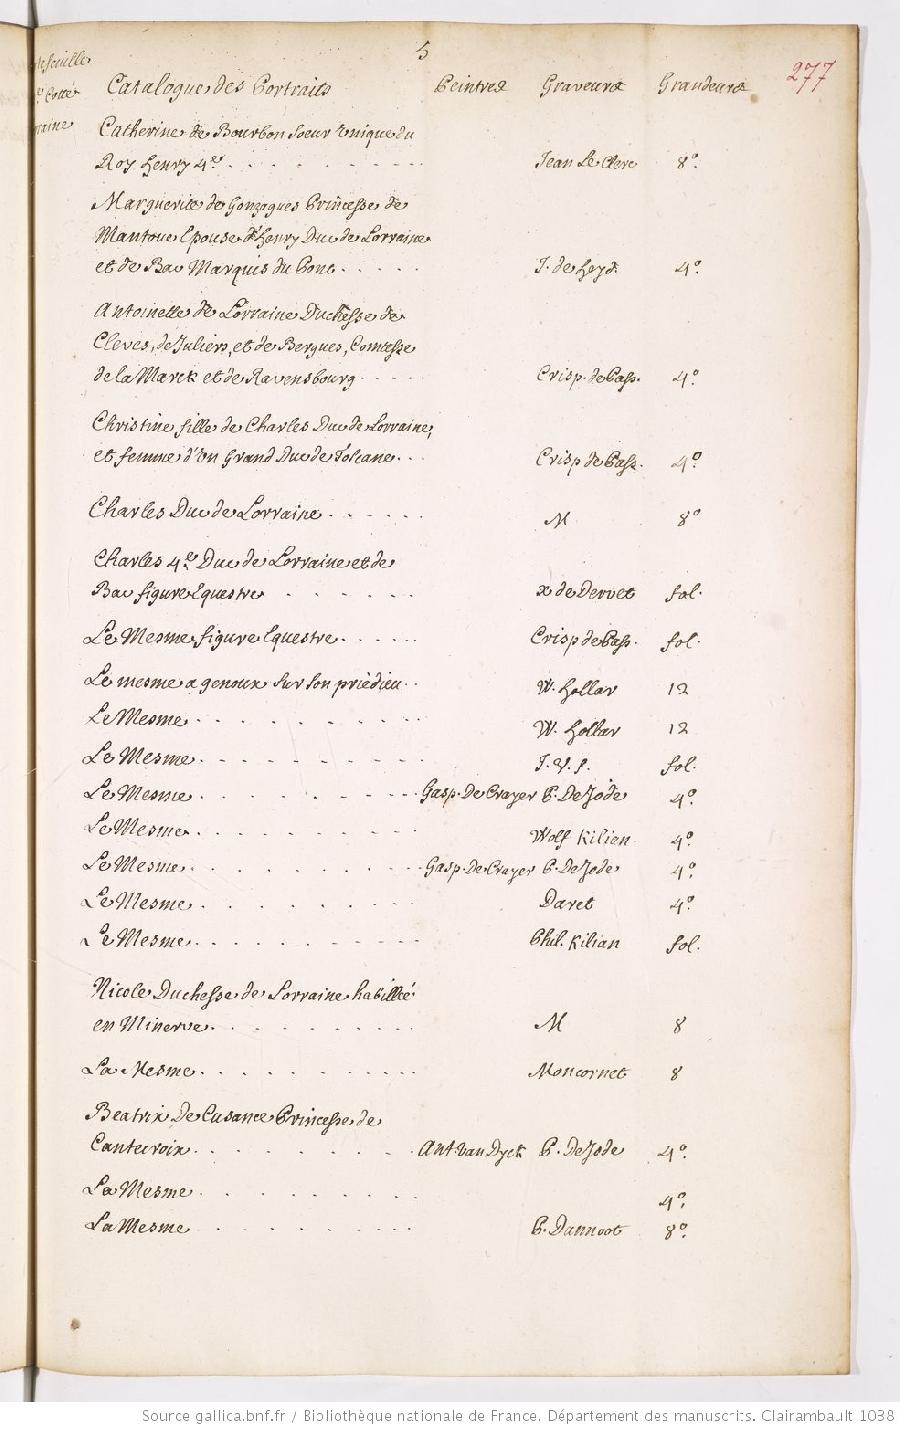 5
277
Catalogue des Portraits Peintres Graveurs Grandeurs
Catherine de Bourbon Soeur Unique du
Roy Henry 4e. Jean Le Clerc 8o.
Marguerite de Gonzagues Princesse de
Mantoue Epouse d'Henry Duc de Lorraine
et de Bar Marquis du Pont. J. de Heyd. 4o.
Antoinette de Lorraine Duchesse de
Cleves, de Juliers, et de Bergues, Comtesse
de la Marck et de Ravensbourg Crisp. de Pass. 4o.
Christine fille de Charles Duc de Lorraine,
et femme d'Un Grand Duc de Toscane. Crisp de Pass. 4o.
Charles Duc de Lorraine M 8o
Charles 4e. Duc de Lorraine et de
Bar figure Equestre x de Dervet fol.
Le Mesme figure Equestre. Crisp de Pass. fol.
Le mesme a genoux sur son priedieu W. Hollar 12
Le Mesme W. Hollar 12
Le Mesme fol.
Le Mesme Gasp. De Crayer P. De Jode 4o.
Le Mesme Wolf Kilien 4o.
Le Mesme Gasp. De Crayer P. De Jode 4o.
Le Mesme Daret 4o.
Le Mesme Phil. Kilian fol.
Nicole Duchesse de Lorraine habillée
en Minerve. M 8
La Mesme Moncornet 8
Beatrix De Cusance Princesse de
Cantecroix. Ant. Van Dyck P. De Jode 4o.
La Mesme 4o.
La Mesme P. Dannoot 8o.
Source gallica.bnf.fr / Bibliothèque nationale de France. Département des manuscrits. Clairambault 1038